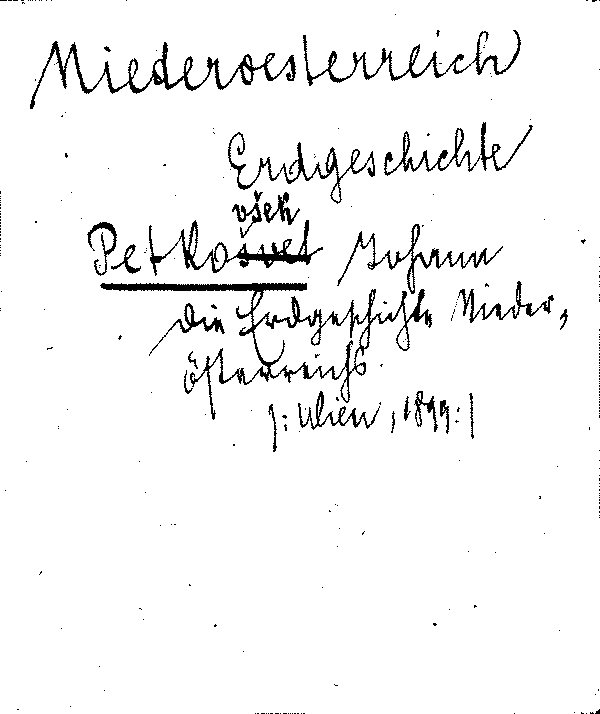 Niederoesterreich
Erdgeschichte
všek
Petkošvet Johann
Die Erdgeschichte Nieder,
österreichs.
|: Wien, 1899:|